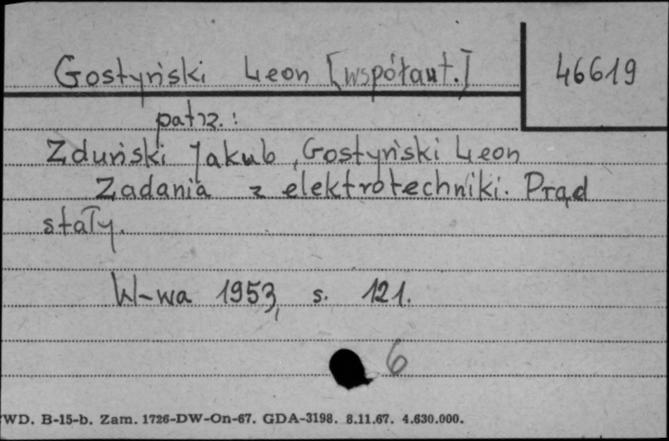 Gostyński Leon [współaut.] 46619
patrz.:
Zduński Jakub, Gostyński Leon
Zadania z elektrotechniki. Prąd
stały.
W-wa 1953, s. 121.
6
WD. B-15-b. Zam. 1726-DW-On-67. GDA-3198. 8.11.67. 4.630.000.